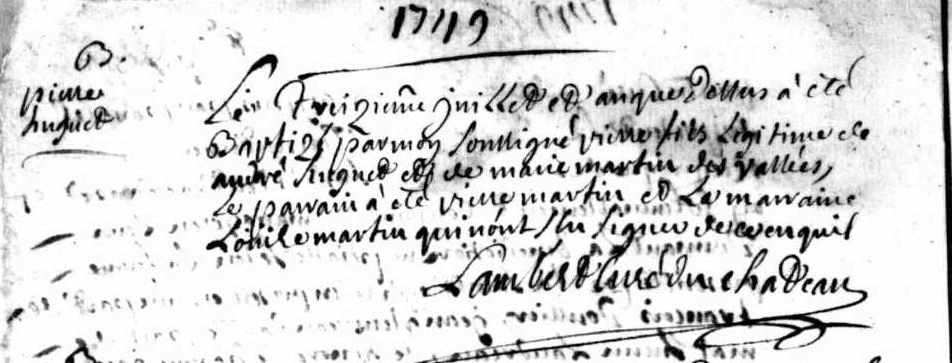 1749
B.
pierre
huguet
Le Treizieme juillet et an que Dessus à été
Baptizé par moy Soussigné pierre fils Legitime de
andré huguet et de marie martin des vallées,
le parrain à été pierre martin et La marraine
Louise martin qui n'ont sçu signer de ce enquis
Lambert Curé du chadeau